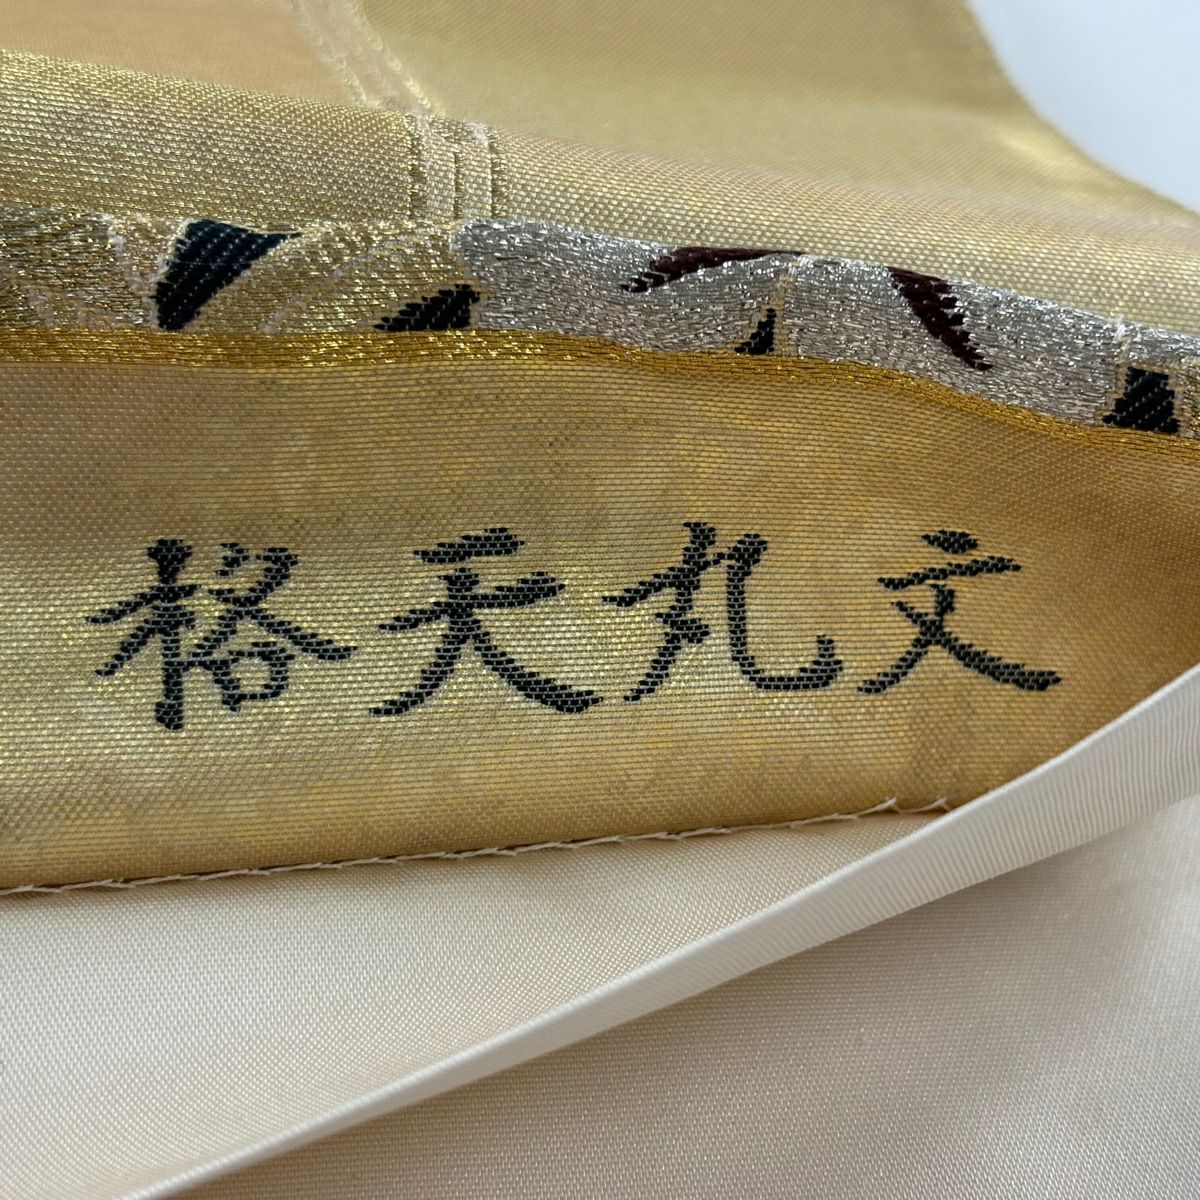 格天丸文